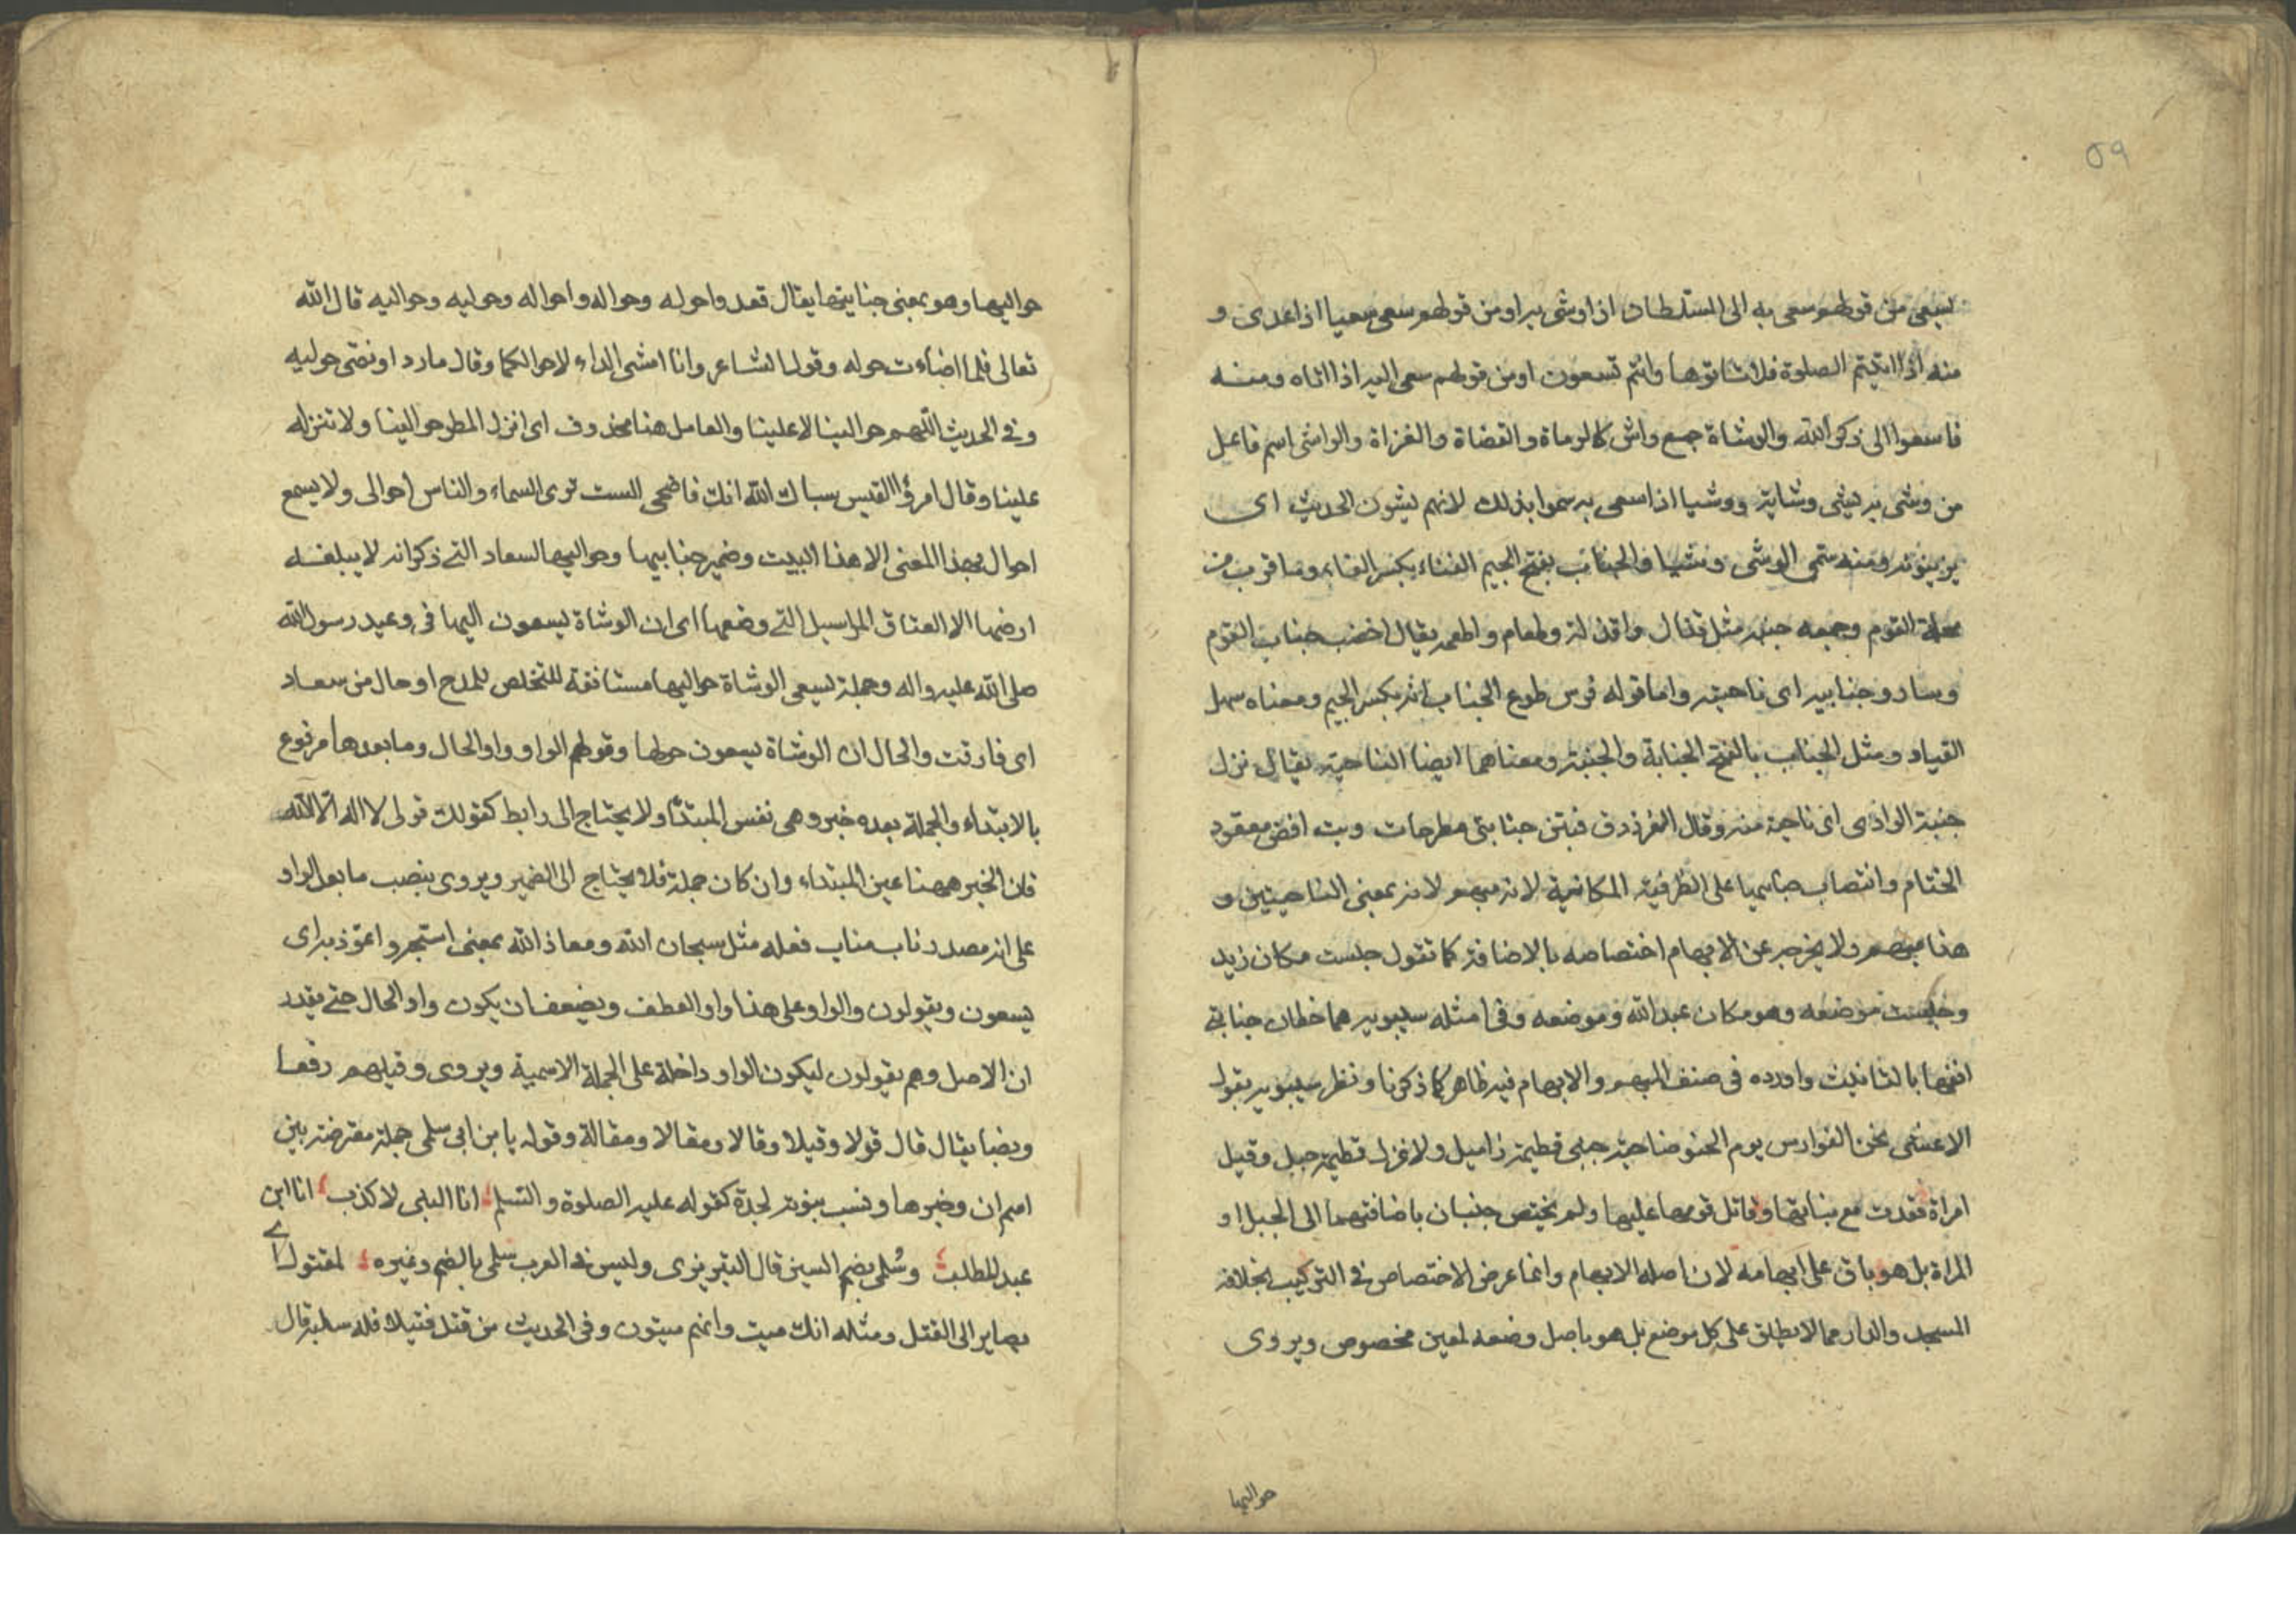 ٥٩
تسعى من قولهم سعى به الى السلطان اذا وشى به او من قولهم سعى سعيا اذا عدى و
منه اذا اتيتم الصلوة فلا تاتوها وانتم تسعون او من قولهم سعى اليه اذا اتاه ومنه
فاسعوا الى ذكر الله والوشاة جمع واش كالرماة والقضاة والغزاة والواشى اسم فاعل
من وشى به يشى وشاية ووشيا اذا سعى به سموا بذلك لانهم يشون الحديث اى
يزينونه ومنه سمى الوشى وشيا والجناب بفتح الجيم الفناء بكسر الفاء وما قرب من
محلة القوم وجمعه جنبه مثل قذال واقذلة وطعام واطعمه يقال اخصب جناب القوم
وسار وجنابيه اى ناحيته واما قوله فرس طوع الجناب انه بكسر الجيم ومعناه سهل
القياد ومثل الجناب بالفتح الجنابة والجنبة ومعناهما ايضا الناحية يقال نزل
جنبة الوادى اى ناحية منه وقال الفرزدق فبتن جنابتى مطرحات وبت افض معقود
الختام وانتصاب جنابيها على الظرفية المكانية لانه مبهم لانه بمعنى الناحيتين و
هذا مبهم ولا يخرجه عن الابهام اختصاصه بالاضافة كما تقول جلست مكان زيد
وجلست موضعه وهو مكان عبد الله وموضعه وفى امثله سيبويه هما خطان جنابتى
انفها بالتانيث واورده فى صنف المبهم والابهام فيه ظاهر كما ذكرنا ونظر سيبويه بقول
الاعشى نحن الفوارس يوم الحنو ضاحية جنبى فطيمة لا ميل ولا عزل فطيمة جبل وقيل
امراة فقدت مع بناتها وقاتل قومها عليها ولم يختص جنبان باضافتهما الى الجبل او
المراة بل هو باق على ابهامه لان اصله الابهام وانما عرض الاختصاص فى التركيب بخلافه
المسجد والدار مما لا يطلق على كل موضع بل هو باصل وضعه لمعين مخصوص ويروى
حواليها
حواليها وهو بمعنى جنابيها يقال قعدوا حوله وحواله واحواله وحوليه وحواليه قال الله
تعالى فلما اضاءت حوله وقول الشاعر وانا امشى الداء لا حوالكما وقال مارد او نصى حوليه
وفى الحديث اللهم حوالينا لا علينا والعامل هنا محذوف اى انزل المطر حوالينا ولا تنزله
علينا وقال امرؤ القيس سباك الله انك فاضحى الست ترى السماء والناس احوالى ولا يسمع
احوال بهذا المعنى الا هذا البيت وضمير جنابيها وحواليها لسعاد التى ذكر انه لا يبلغه
ارضها الا العتاق المراسيل التى وضعها اى ان الوشاة يسعون اليها فى وعيد رسول الله
صلى الله عليه واله وجملة تسعى الوشاة حواليها مستانفة للتخلص للمدح او حال من سعاد
اى فارقت والحال ان الوشاة يسعون حولها وقولهم الواو واو الحال وما بعدها مرفوع
بالابتداء والجملة بعده خبر وهى نفس المبتدأ ولا يحتاج الى رابط كقولك قولى لا اله الا الله
فان الخبر ههنا عين المبتداء وان كان جملة فلا يحتاج الى الضمير ويروى بنصب ما بعد الواو
على انه مصدر ناب مناب فعله مثل سبحان الله ومعاذ الله بمعنى استجير واعوذ به اى
يسعون ويقولون والواو على هذا واو العطف ويضعف ان يكون واو الحال حتى يقدر
ان الاصل وهم يقولون ليكون الواو داخلة على الجملة الاسمية ويروى وقيلهم رفعا
ونصبا يقال قال قولا وقيلا وقالا ومقالا ومقالة وقوله يا بن ابى سلمى جملة معترضة بين
اسم ان وخبرها ونسب بنوته لجدة كقوله عليه الصلوة والتسلم انا النبى لا كذب انا ابن
عبد المطلب وسُلمى بضم السين قال التبريزى وليس فى العرب سلمى بالضم وغيره لمقتول اى
بصاير الى القتل ومثله انك ميت وانهم ميتون وفى الحديث من قتل قتيلا فله سلبه قال